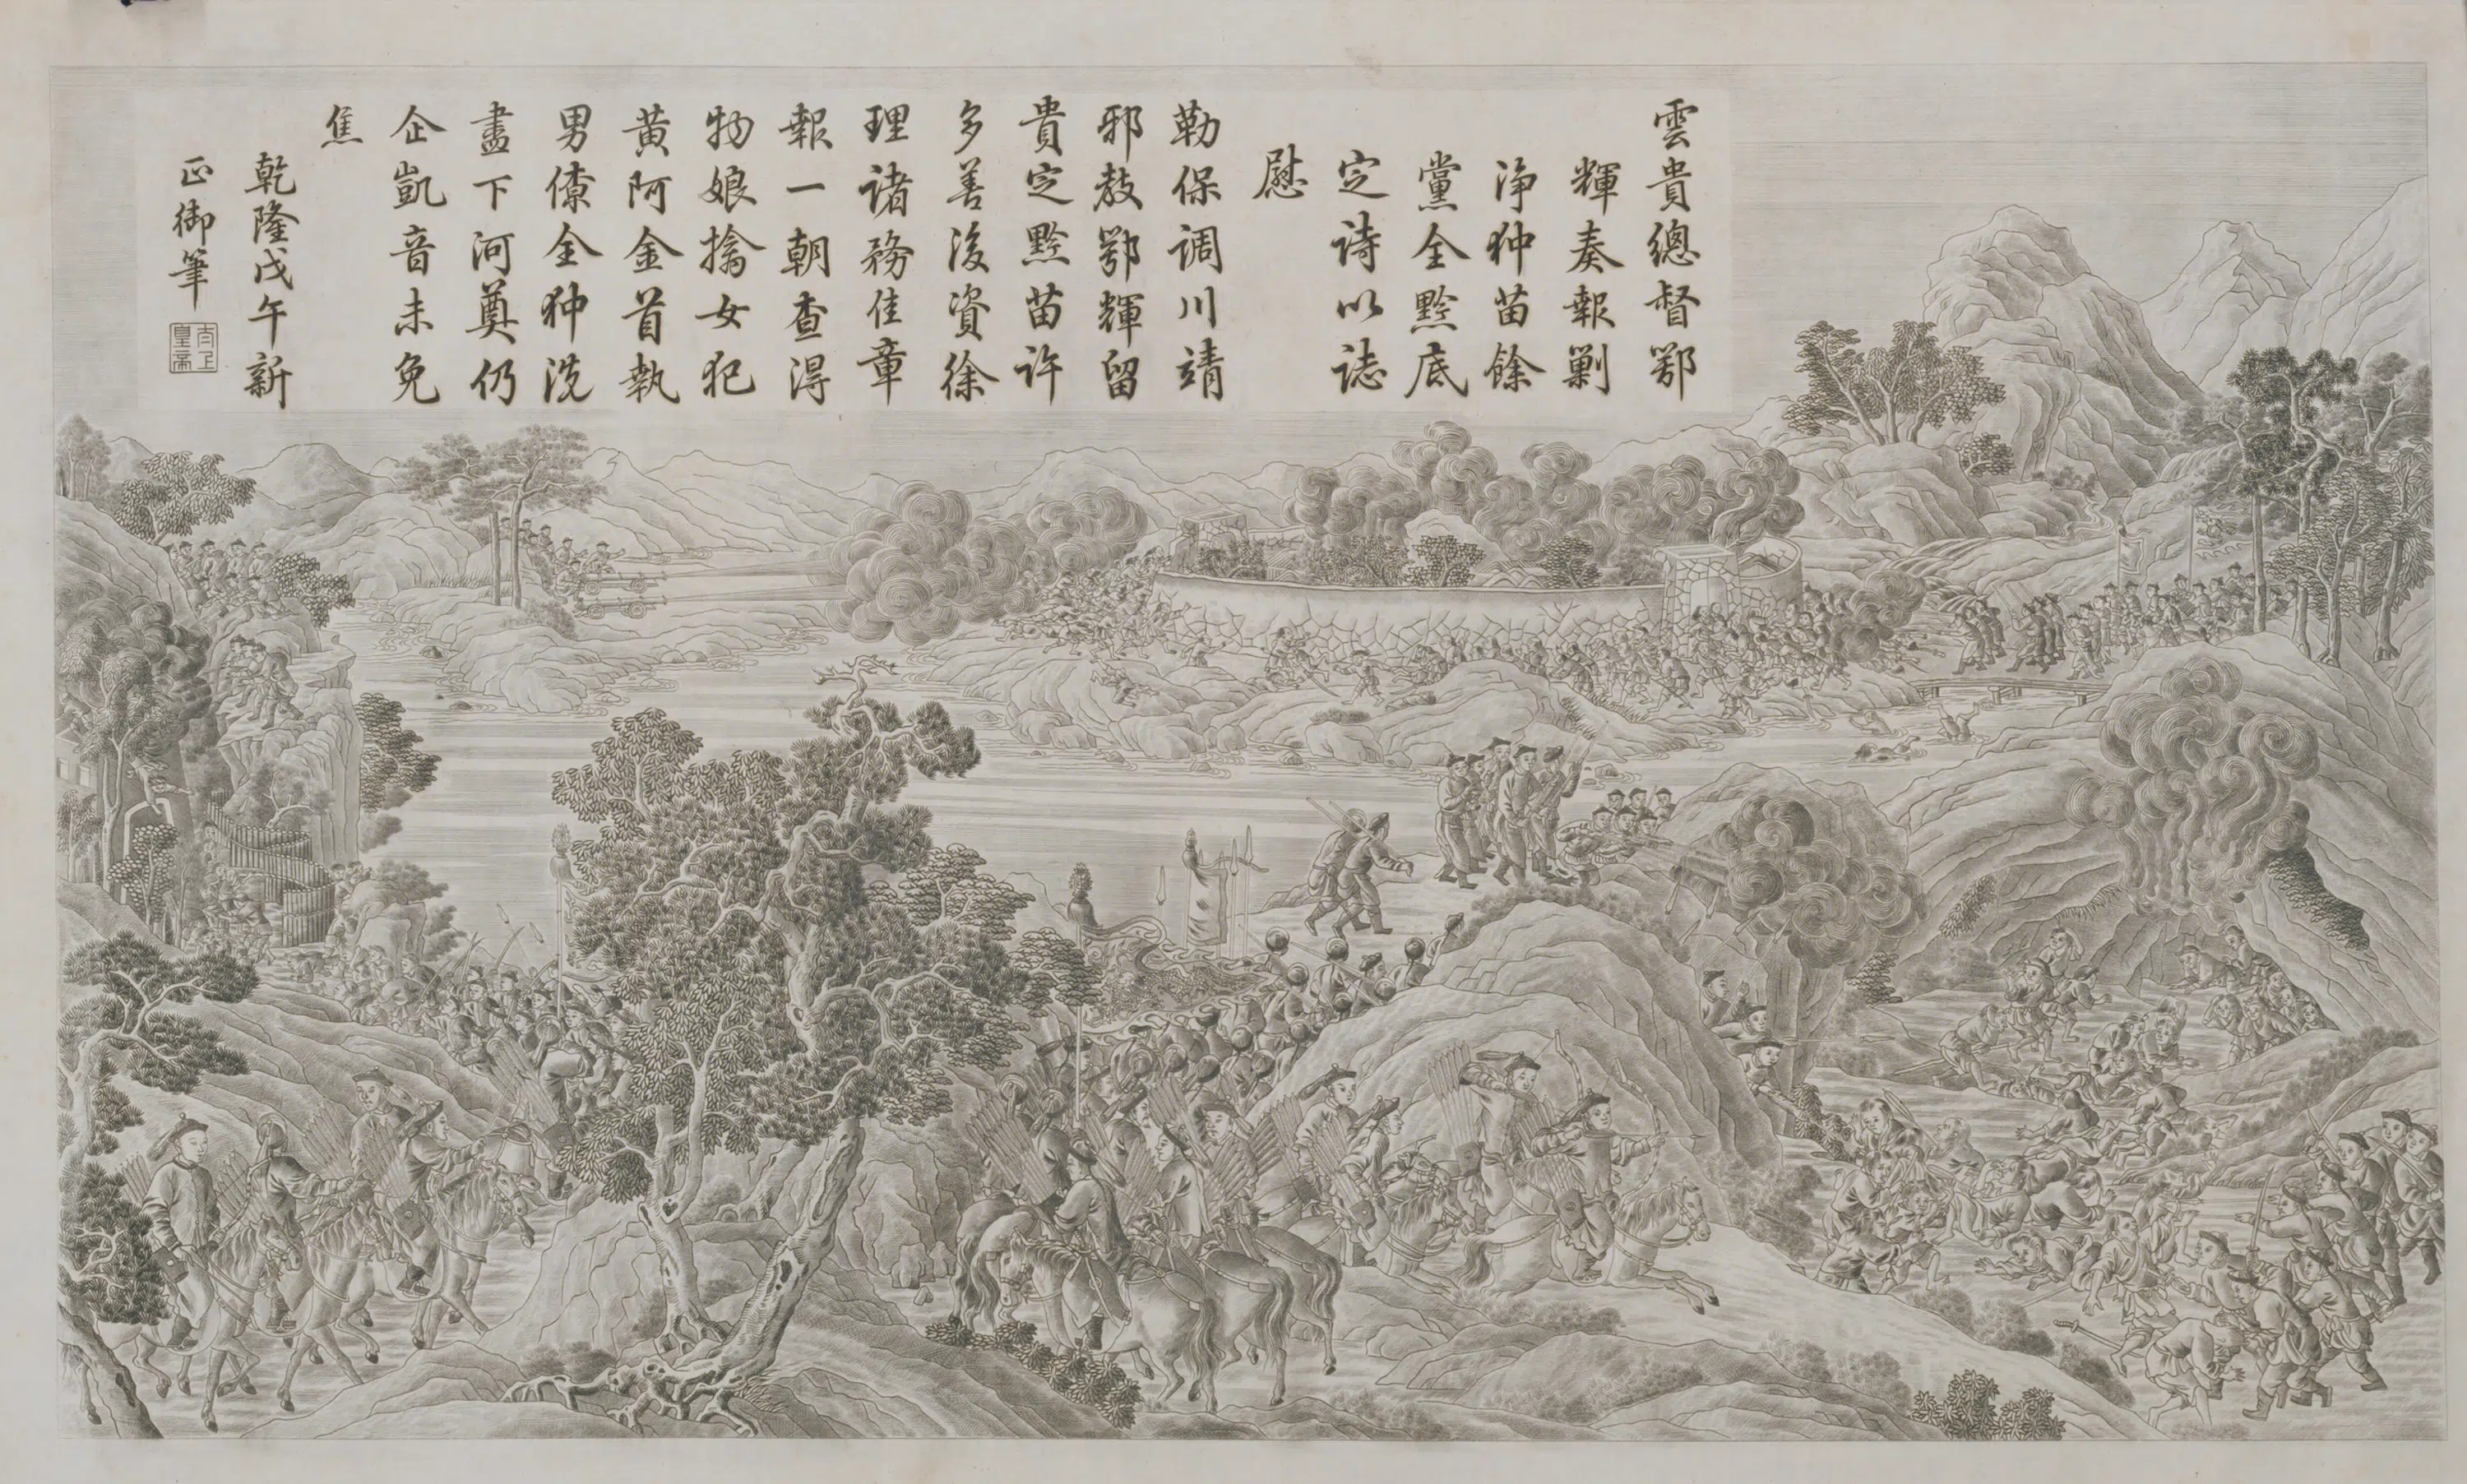 雲貴總督鄂
輝奏報剿
淨狆苗餘
黨全黔底
定詩以誌
慰
勒保調川靖
邪教鄂輝留
貴定黔苗許
多善後資徐
理諸務佳章
報一朝查得
物娘擒女犯
黃阿金首執
男僚全狆洗
盡下河奠仍
企凱音未免
焦
乾隆戊午新
正御筆
太上
皇帝